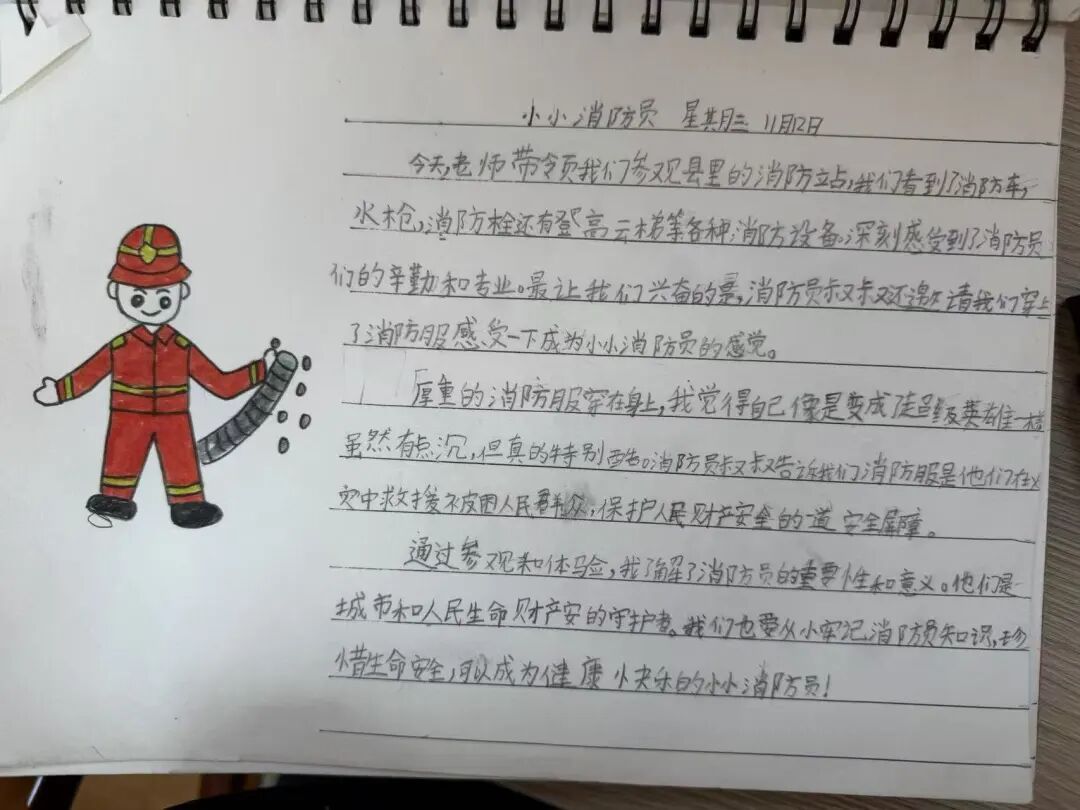 小小消防员 星期三 11月12日
今天,老师带领页我们参观县里的消防立占,我们看到了消防车,
水枪,消防栓还有登高云梯等各种消防设备,深刻感受到了消防员
们的辛勤和专业。最让我们兴奋的是,消防员叔叔还邀请我们穿上
了消防服感受一下成为小小消防员的感觉。
厚重的消防服穿在身上,我觉得自己像是变成超级英雄一样
虽然有点沉,但真的特别酷。消防员叔叔告诉我们消防服是他们在火
灾中救援被困人民群众,保护人民财产安全的一道安全屏障。
通过参观和体验,我了解了消防员的重要性和意义。他们是
城市和人民生命财产安的守护者。我们也要从小牢记消防员知识,珍
惜生命安全,可以成为健康小快乐的小小消防员!